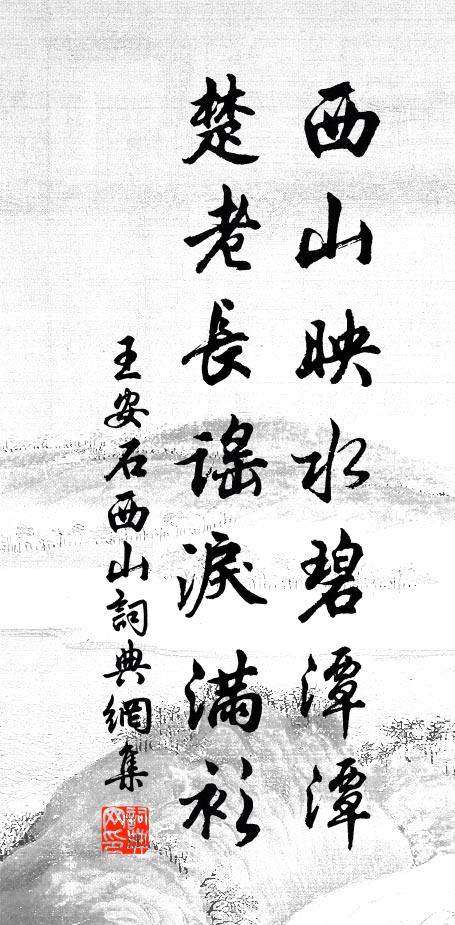 西山映水碧潭潭
楚老長謠淚滿衫
王安石西山詞典網集
詞典网集